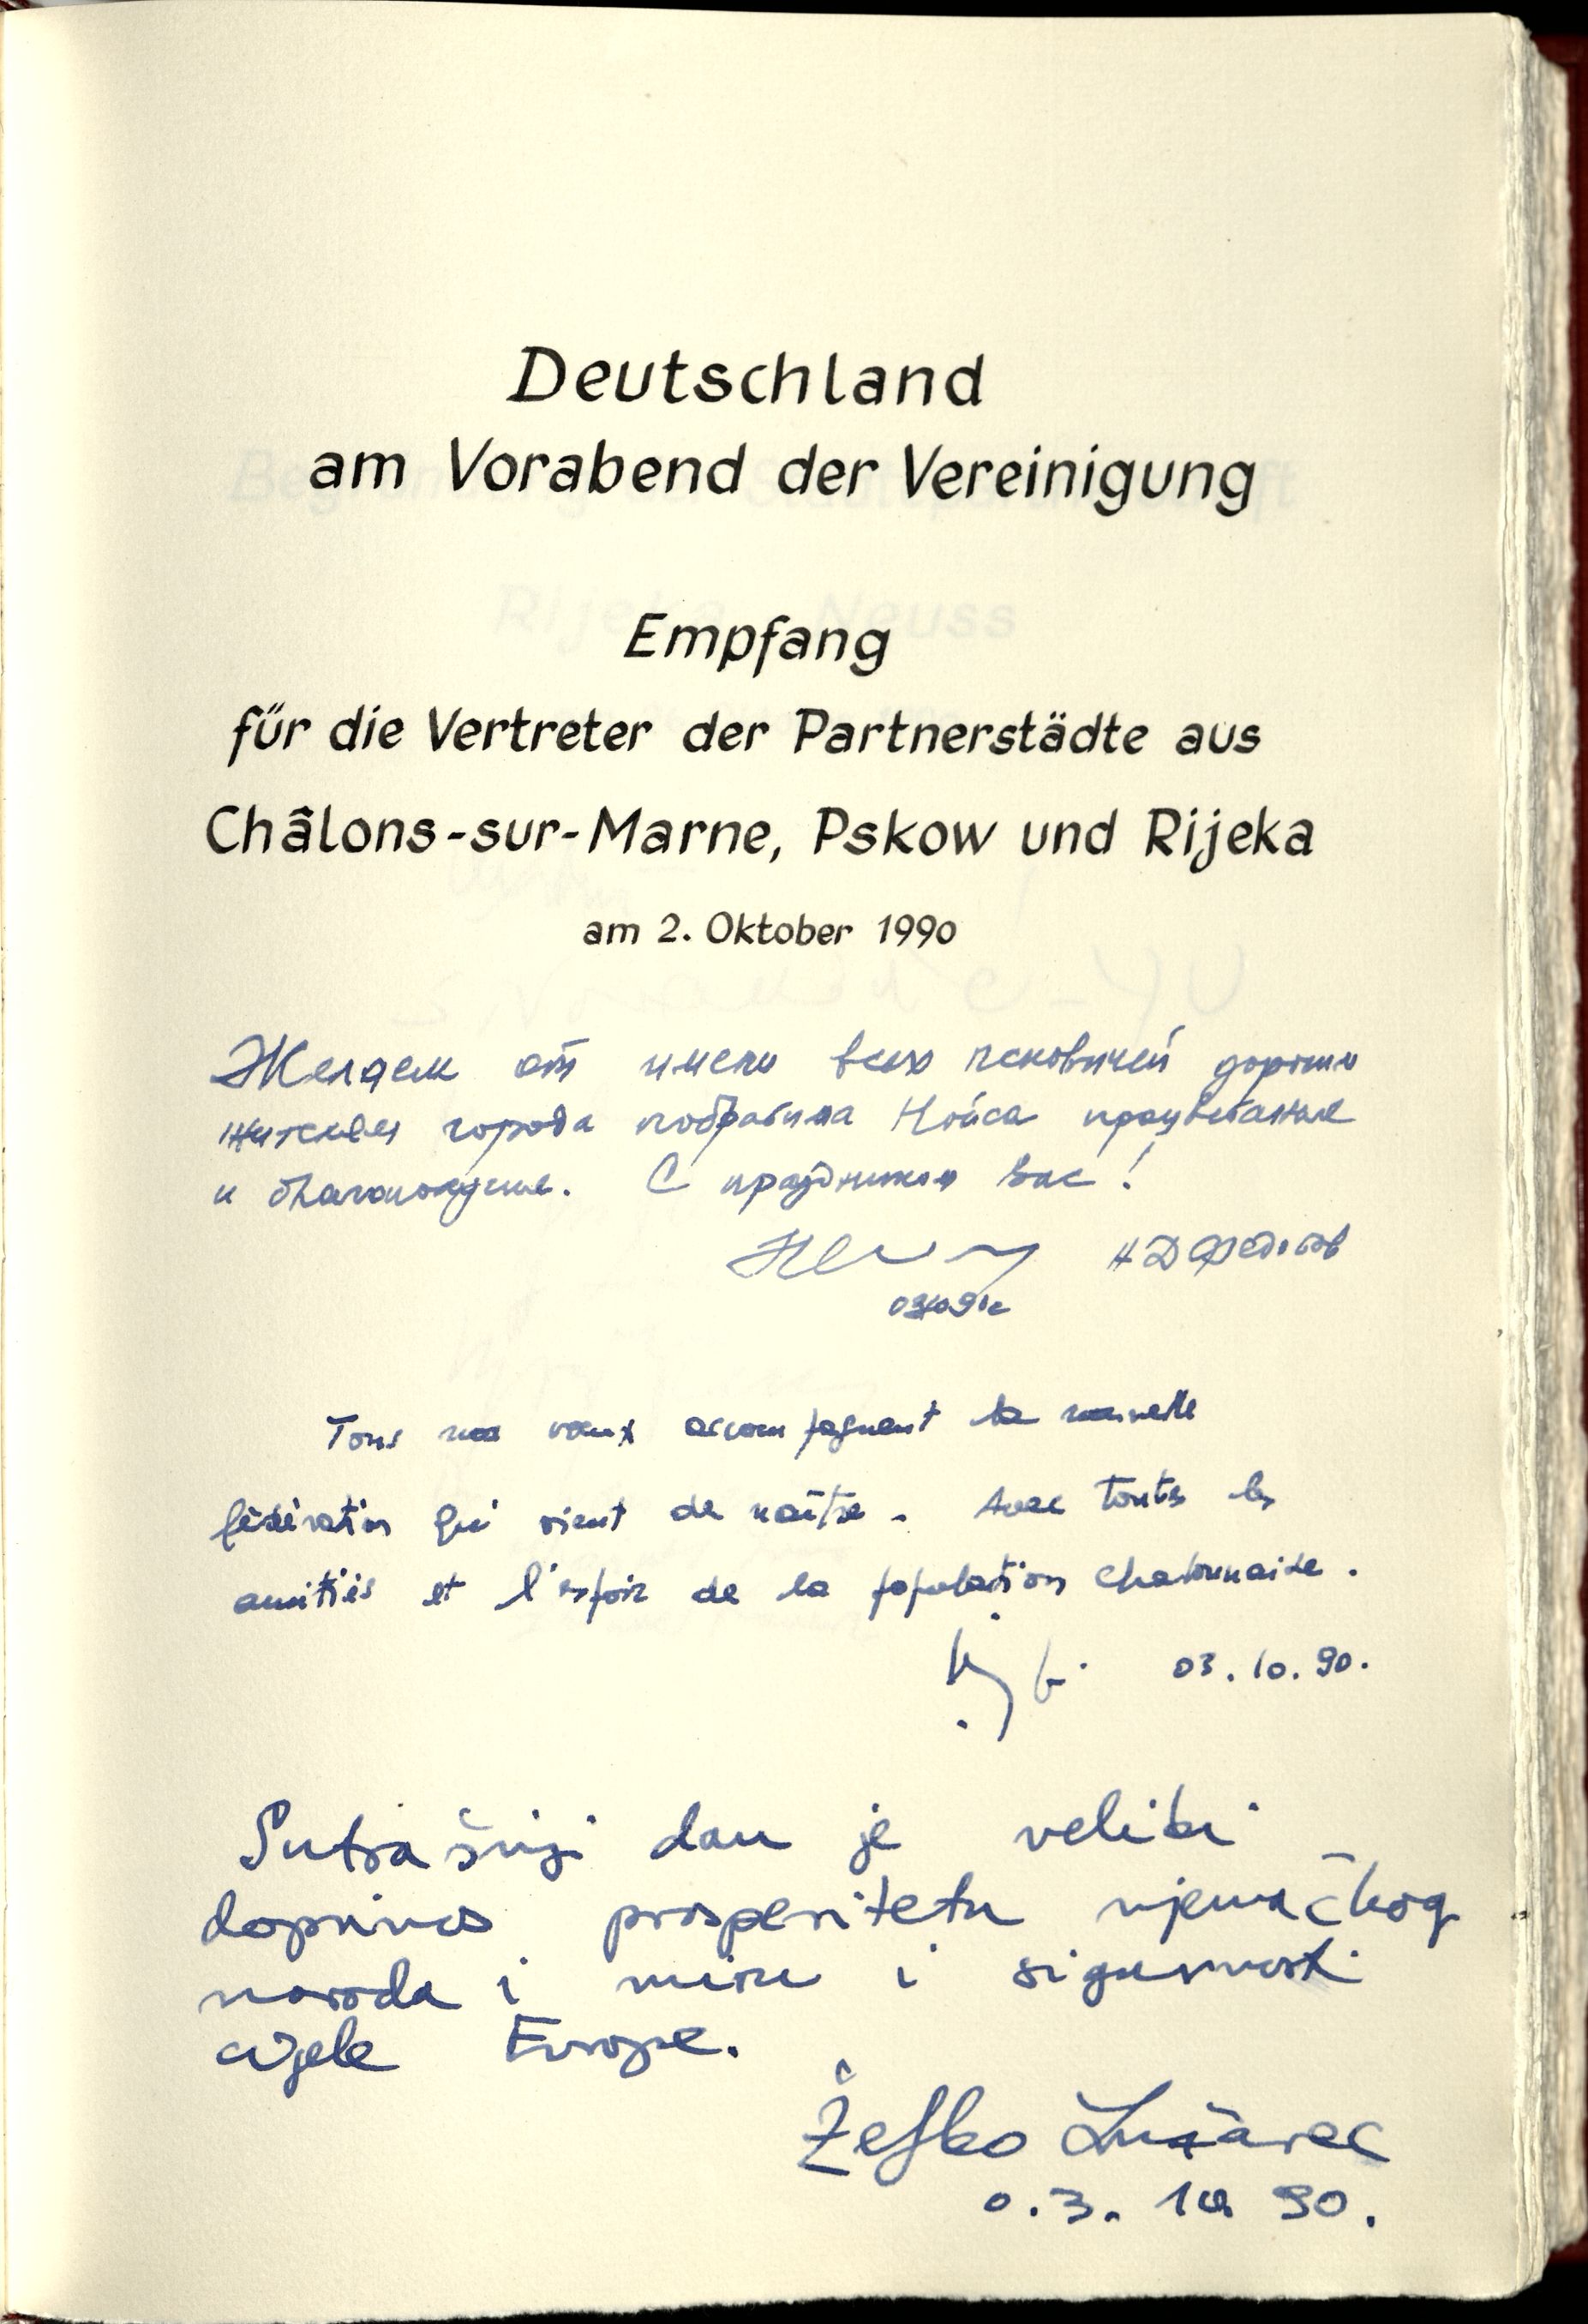 Deutschland
am Vorabend der Vereinigung
Empfang
für die Vertreter der Partnerstädte aus
Châlons-sur-Marne, Pskow und Rijeka
am 2. Oktober 1990
Желаем от имени всех псковичей дорогим
жителям города побратима Нойса процветания
и благополучие. С праздником вас!
Н Д Федотов
Tous nos vœux accompagnent la nouvelle
fédération qui vient de naître. Avec toutes les
amitiés et l'espoir de la population chalonnaise.
03.10.90.
Sutrašnji dan je veliki
doprinos prosperitetu njemačkog
naroda i miru i sigurnosti
cijele Europe.
Željko Lužavec
0.3. 10 90.